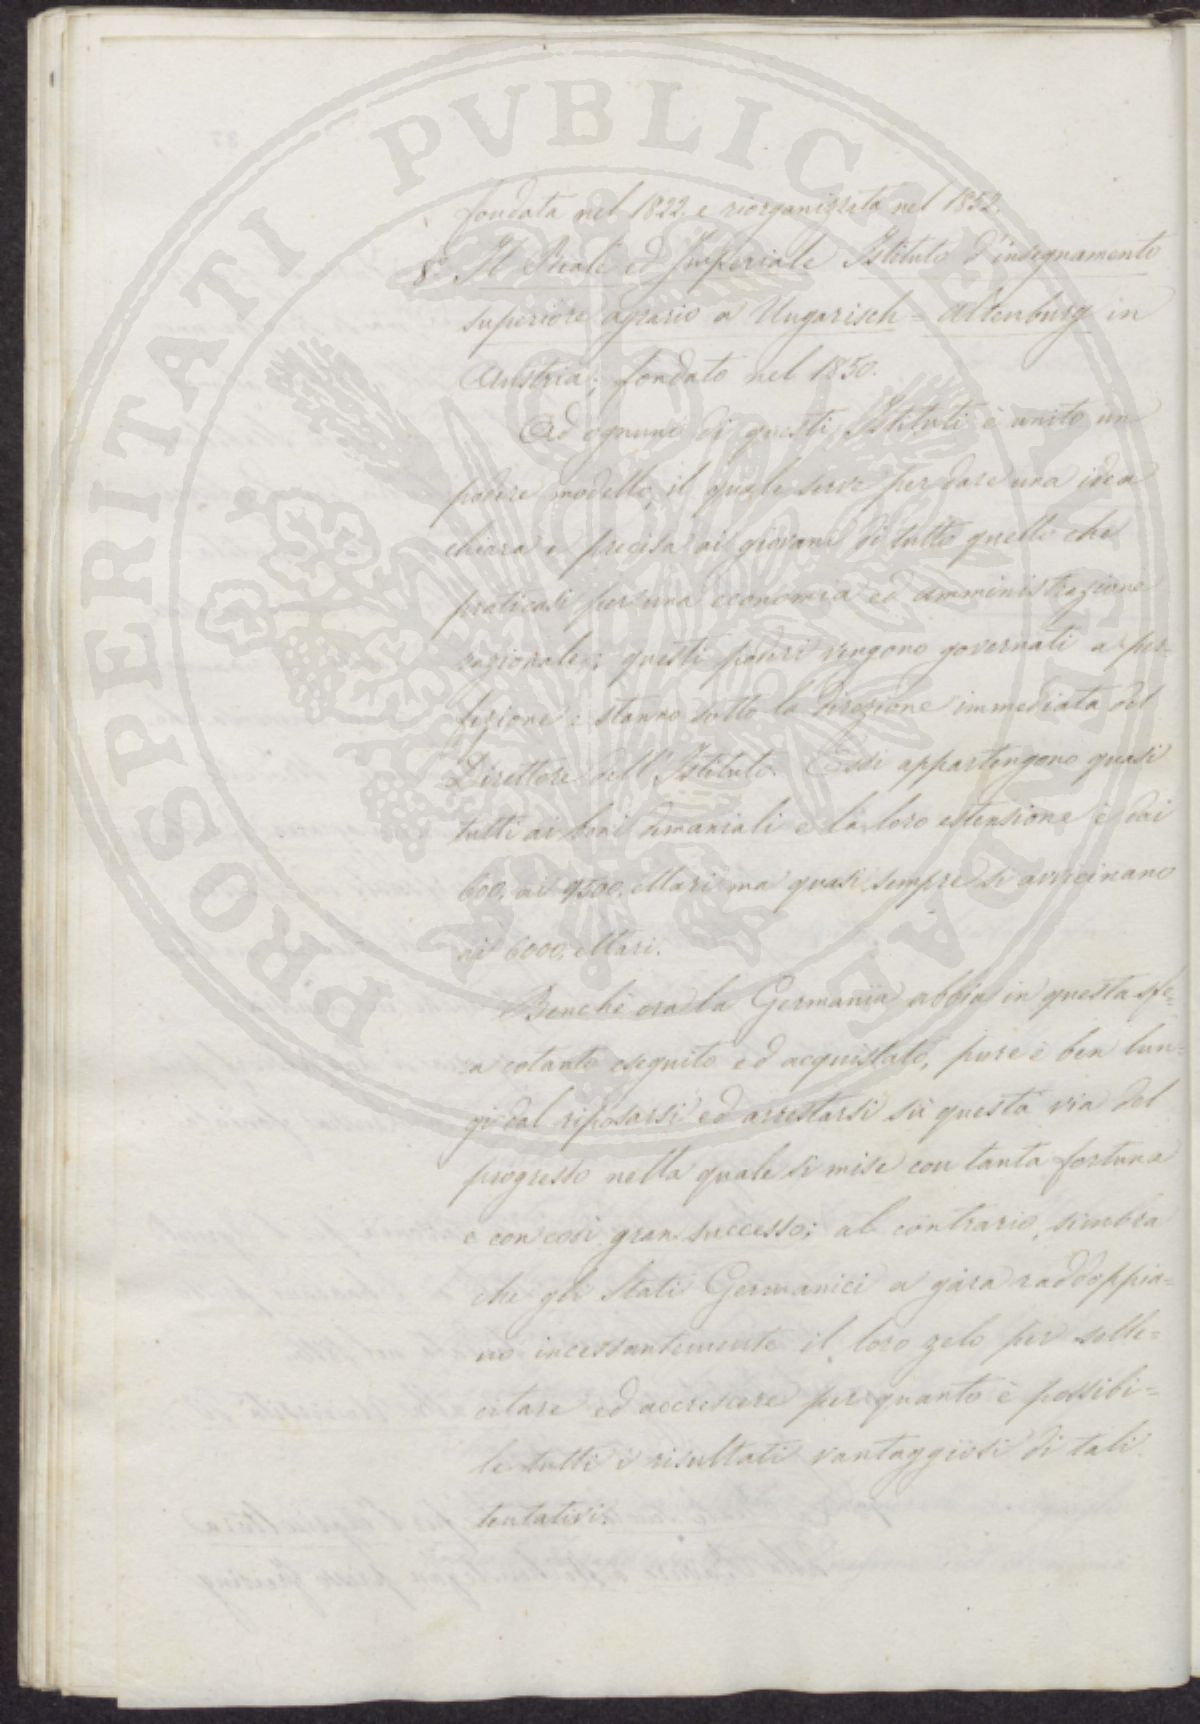 fondata nel 1822. e riorganizzata nel 1852.
8º Il Reale ed Imperiale Istituto d'insegnamento
superiore agrario a Ungarisch = Altenburg in
Austria; fondato nel 1850.
Ad ognuno di questi Istituti è unito un
podere modello, il quale serve per dare una idea
chiara e precisa ai giovani di tutto quello che
praticasi per una economia ed amministrazione
razionale; questi poderi vengono governati a per=
fezione e stanno sotto la direzione immediata del
Direttore dell'Istituto. Essi appartengono quasi
tutti ai beni demaniali e la loro estensione è dai
600, ai 9500, ettari ma quasi sempre si avvicinano
ai 6000, ettari.
Benchè ora la Germania abbia in questa sfe=
ra cotanto eseguito ed acquistato, pure è ben lun=
gi dal riposarsi ed arrestarsi sù questa via del
progresso nella quale si mise con tanta fortuna
e con così gran successo; al contrario, sembra
che gli Stati Germanici a gara raddoppia=
no incessantemente il loro zelo per solle=
citare ed accrescere per quanto è possibi=
le tutti i risultati vantaggiosi di tali
tentativi.
PROSPERITATI PVBLICAE AVGENDAE